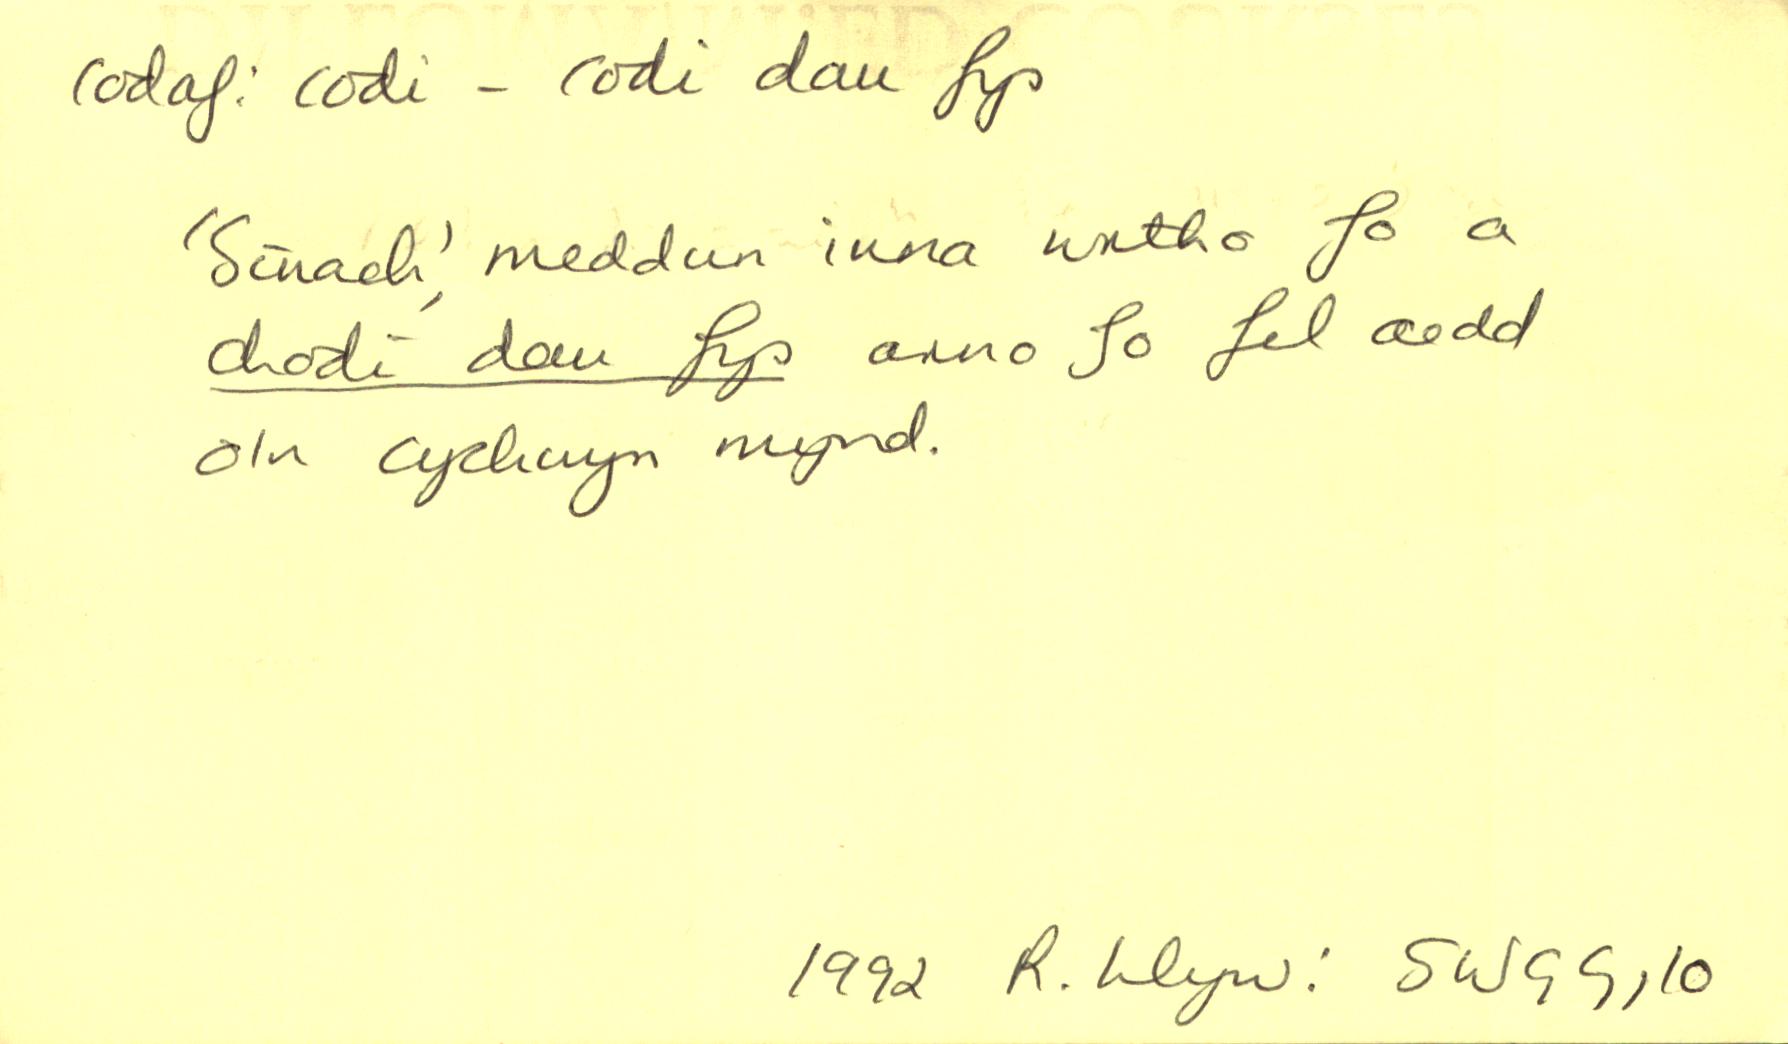 codaf: codi - codi dau fys
'Sinach', meddwn inna wrtho fo a
chodi dau fys arno fo fel oedd
o'n cychwyn mynd.
1992 R. Wyn: SWGG, 10